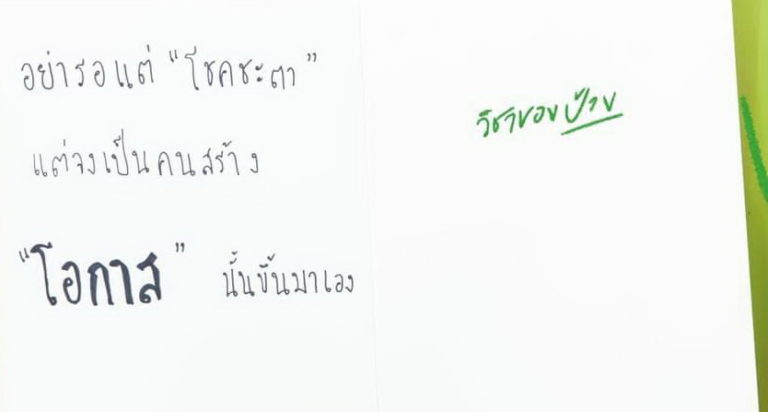 อย่ารอแต่ "โชคชะตา"
แต่จงเป็นคนสร้าง
"โอกาส" นั้นขึ้นมาเอง
วิชาของป๋าย